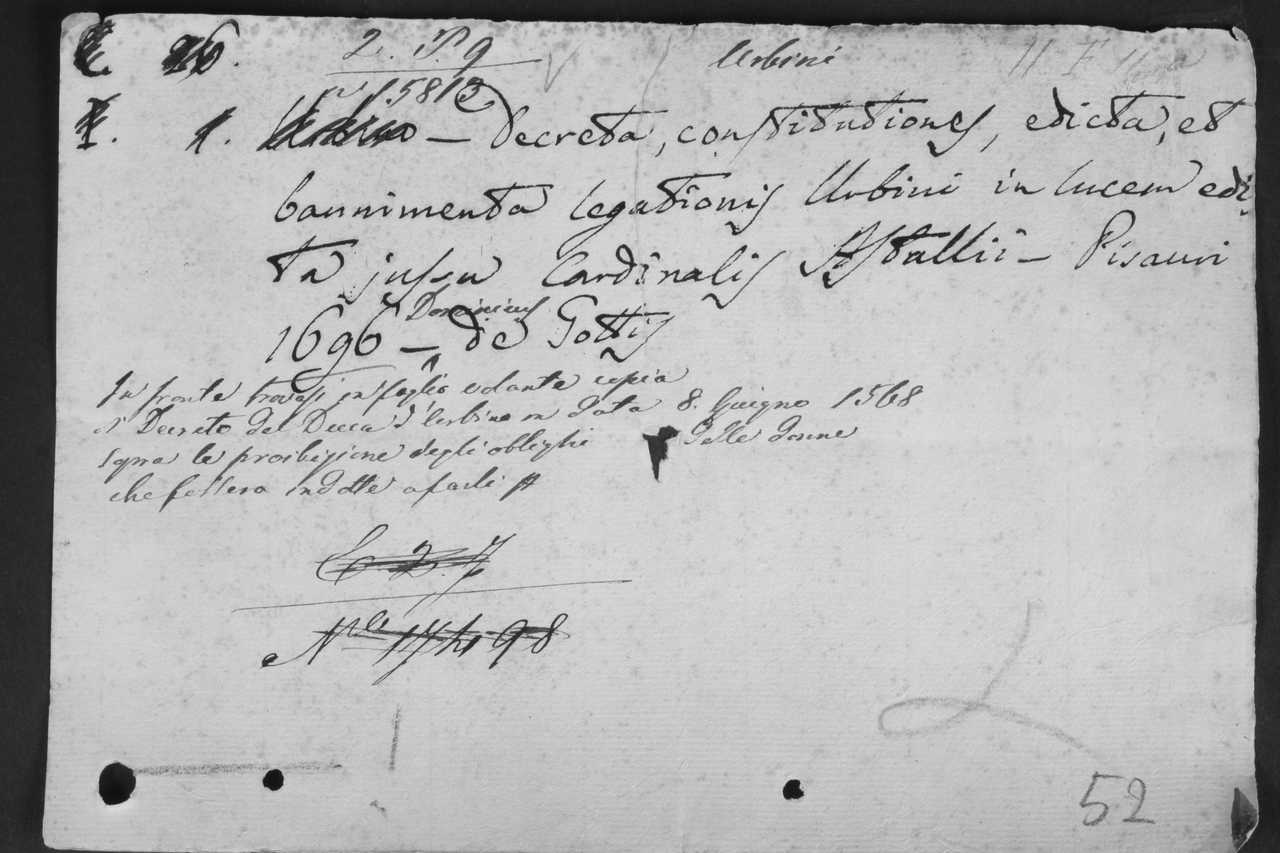 26. 2. P. 9 Urbini
n 15813
1. 1. Urbino – Decreta, constitutiones, edicta, et
bannimenta legationis Urbini in lucem edi
ta jussu Cardinalis Astallii – Pisauri
Dominicus
1696 – de Gottis
In fronte trovasi in foglio volante copia
d'Decreto del Ducca d'Urbino in data 8. Giugno 1568
sopra la proibizione degli oblighi delle donne
che fossero indotte a farli
C. 2. 7
N.º 98
52